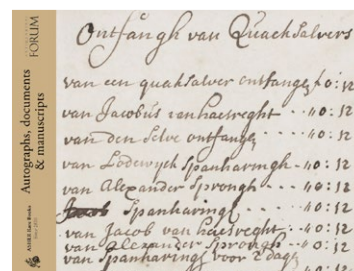 FORUM
Autographs, documents
& manuscripts
ASHER Rare Books
Ontfangh van Quacksalvers
van een quaksalver ontfange f 0:12
van Jacobus van haesreght - - "0:12
van den selve ontfange - - - "0:12
van Lodewyck Spanharingh - "0:12
van Alexander Sprongh - - - "0:12
Spanharingh - - - "0:12
van Jacob van haesreght - - "0:12
van Alexander Sprongh - - "0:12
van Spanharingh voor 2 dag